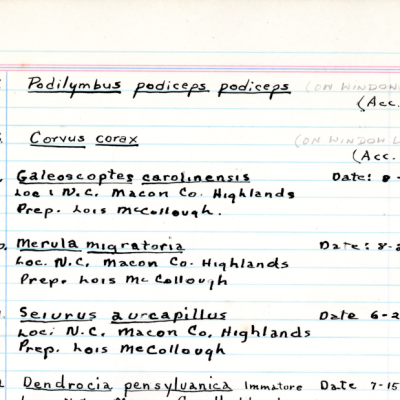 Podilymbus podiceps podiceps (ON WINDOW
(Acc.
Corvus corax (ON WINDOW L
(Acc.
Galeoscoptes carolinensis Date: 8-
Loc: N.C. Macon Co. Highlands
Prep. Lois McCollough.
Merula migratoria Date: 8-2
Loc. N.C. Macon Co. Highlands
Prep. Lois McCollough
Seiurus aurcapillus Date 6-2
Loc: N.C. Macon Co. Highlands
Prep. Lois McCollough
Dendrocia pensylvanica Immature Date 7-15